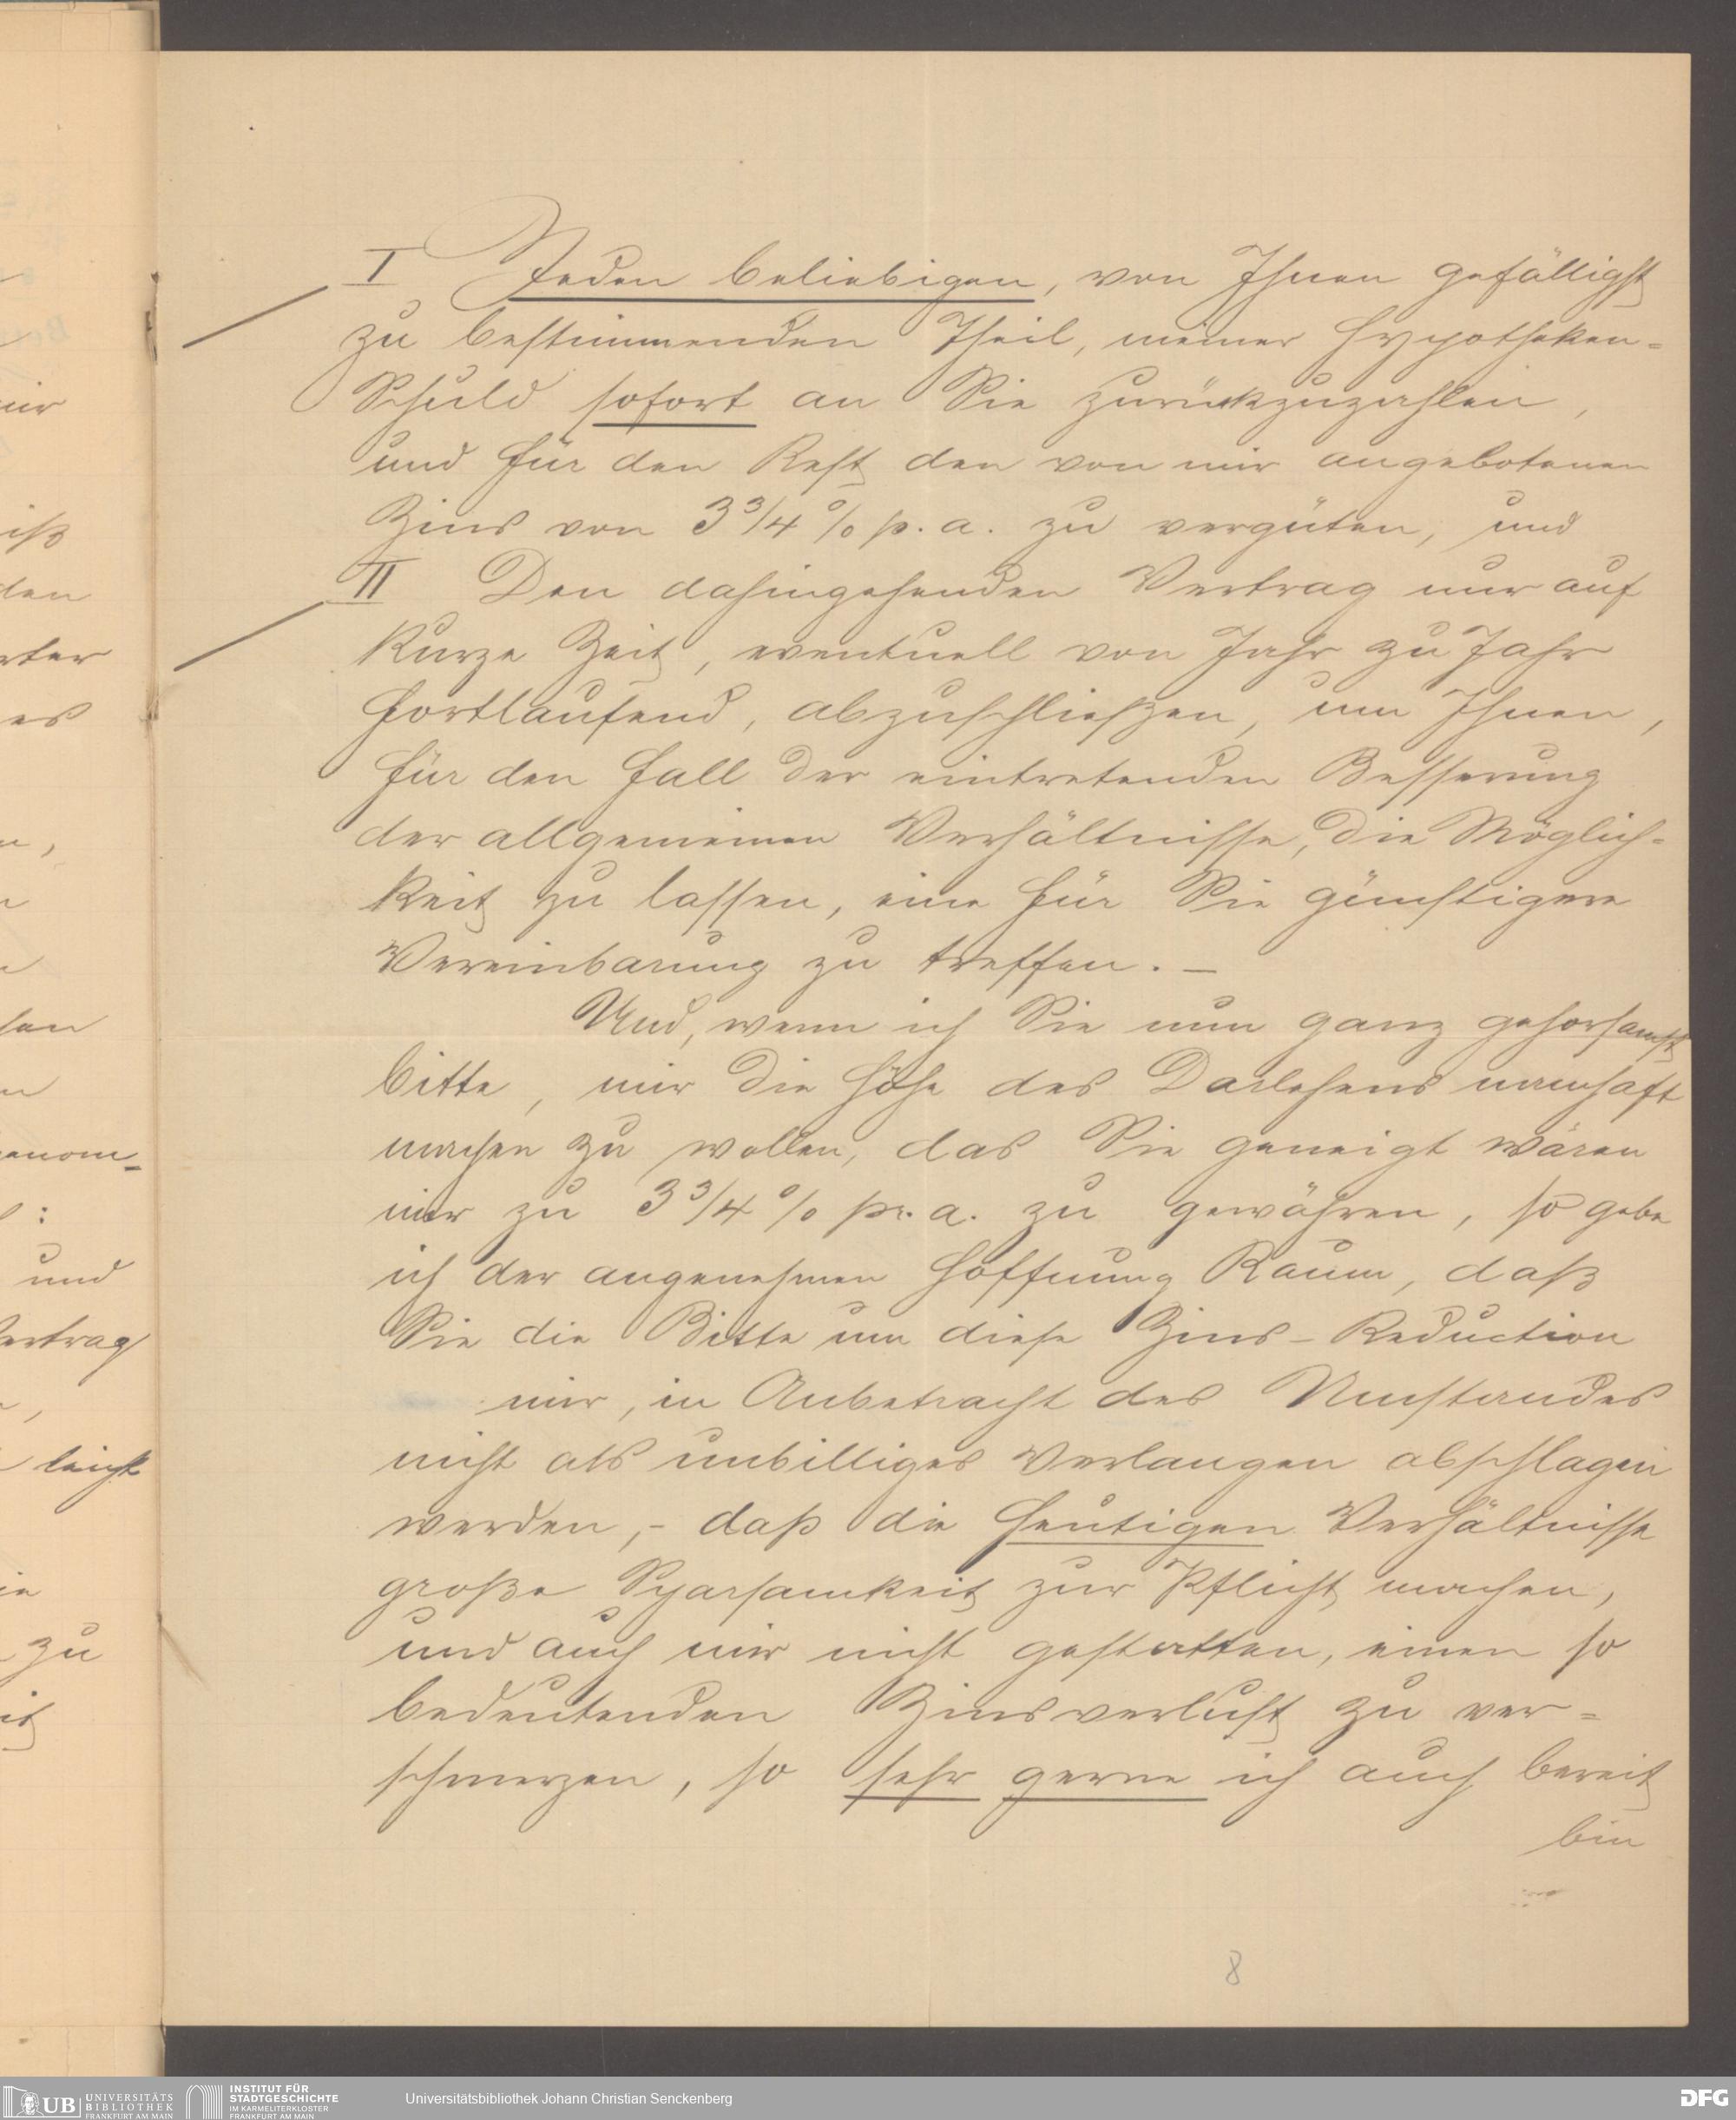 I Jeden beliebigen, von Ihnen gefälligst
zu bestimmenden Theil, meiner Hypotheken-
Schuld sofort an Sie zurückzuzahlen,
und für den Rest den von mir angebotenen
Zins von 3 3/4 % p. a. zu vergüten, und
II Den dahingehenden Vertrag nur auf
kurze Zeit, eventuell von Jahr zu Jahr
fortlaufend, abzuschließen, um Ihnen,
für den Fall der eintretenden Besserung
der allgemeinen Verhältnisse, die Möglich-
keit zu lassen, eine für Sie günstigere
Vereinbarung zu treffen. —
Und, wenn ich Sie nun ganz gehorsamst
bitte, mir die Höhe des Darlehens namhaft
machen zu wollen, das Sie geneigt wären
mir zu 3 3/4 % pr. a. zu gewähren, so gebe
ich der angenehmen Hoffnung Raum, daß
Sie die Bitte um diese Zins-Reduction
mir, in Anbetracht des Umstandes
nicht als unbilliges Verlangen abschlagen
werden, - daß die heutigen Verhältnisse
große Sparsamkeit zur Pflicht machen,
und auch mir nicht gestatten, einen so
bedeutenden Zinsverlust zu ver-
schmerzen, so sehr gerne ich auch bereit
bin
8
mir
iß
den
es
n,
genom-
und
Vertrag
leicht
zu
UB UNIVERSITÄTS
BIBLIOTHEK
FRANKFURT AM MAIN
INSTITUT FÜR
STADTGESCHICHTE
IM KARMELITERKLOSTER
FRANKFURT AM MAIN
Universitätsbibliothek Johann Christian Senckenberg
DFG